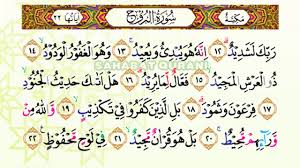 مَكِّيَّة سُورَةُ الْبُرُوجِ اٰيَاتُهَا ٢٢
رَبِّكَ لَشَدِيْدٌ ۗ ١٢ اِنَّهٗ هُوَ يُبْدِئُ وَيُعِيْدُ ۚ ١٣ وَهُوَ الْغَفُوْرُ الْوَدُوْدُ ۙ ١٤
ذُو الْعَرْشِ الْمَجِيْدُ ۙ ١٥ فَعَّالٌ لِّمَا يُرِيْدُ ۗ ١٦ هَلْ اَتٰىكَ حَدِيْثُ الْجُنُوْدِ ۙ
١٧ فِرْعَوْنَ وَثَمُوْدَ ۗ ١٨ بَلِ الَّذِيْنَ كَفَرُوْا فِيْ تَكْذِيْبٍ ۙ ١٩ وَاللّٰهُ مِنْ
وَّرَاۤىِٕهِمْ مُّحِيْطٌ ۚ ٢٠ بَلْ هُوَ قُرْاٰنٌ مَّجِيْدٌ ۙ ٢١ فِيْ لَوْحٍ مَّحْفُوْظٍ ࣖ ٢٢
SAHABAT QURANI